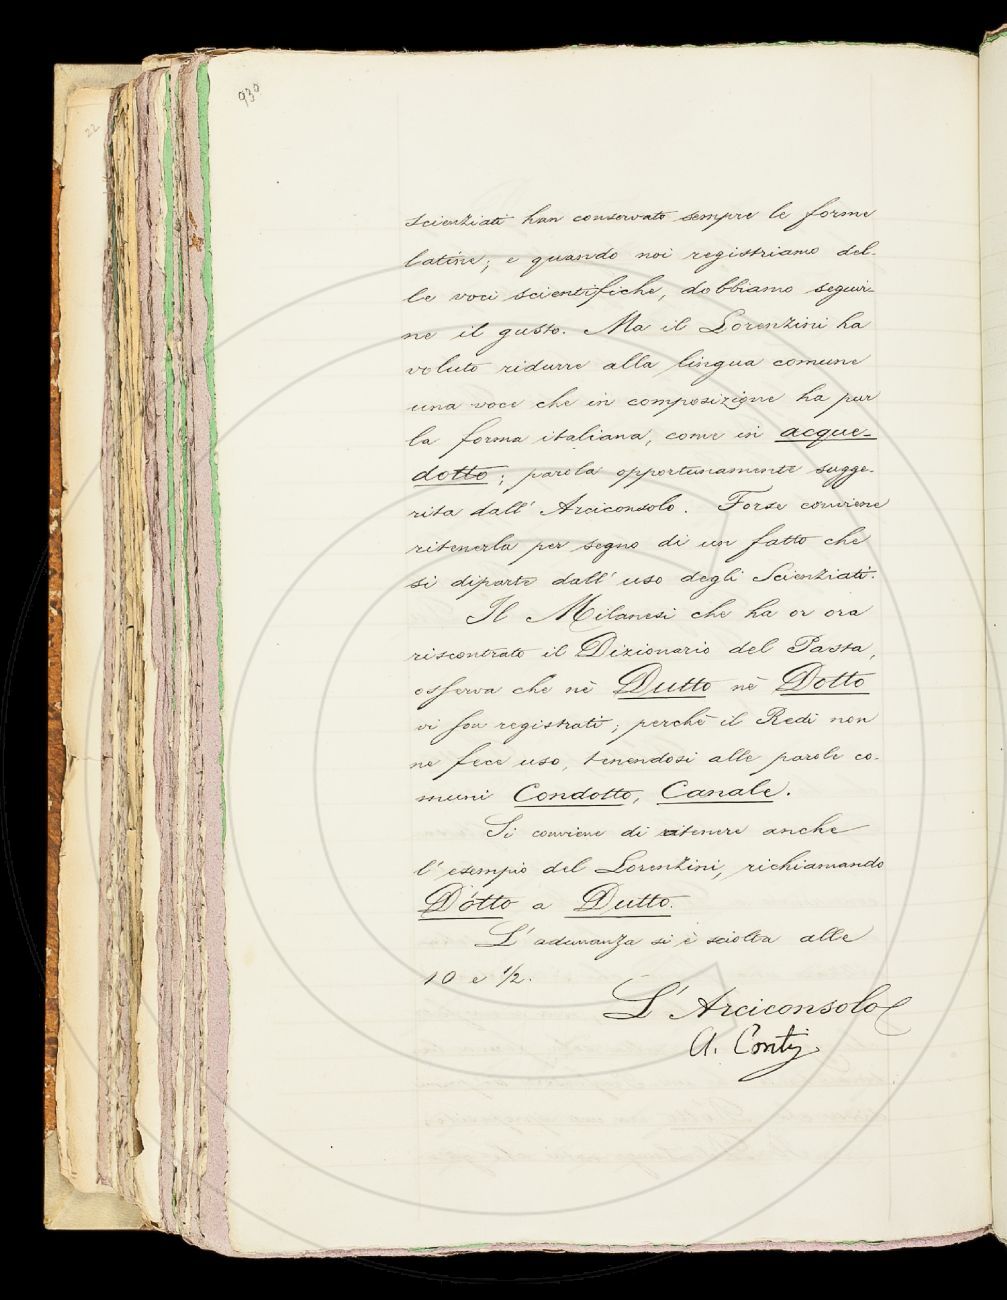 930
22
scienziati han conservato sempre le forme
latine; e quando noi registriamo del-
le voci scientifiche, dobbiamo seguir-
ne il gusto. Ma il Lorenzini ha
voluto ridurre alla lingua comune
una voce che in composizione ha pur
la forma italiana, come in acque-
dotto; parola opportunamente sugge-
rita dall' Arciconsolo. Forse conviene
ritenerla per segno di un fatto che
si diparte dall' uso degli Scienziati.
Il Milanesi che ha or ora
riscontrato il Dizionario del Pasta,
osserva che nè Dutto nè Dotto
vi son registrati; perchè il Redi non
ne fece uso, tenendosi alle parole co-
muni Condotto, Canale.
Si conviene di ritenere anche
l' esempio del Lorenzini, richiamando
Dótto a Dutto.
L' adunanza si è sciolta alle
10 e 1/2.
L' Arciconsolo
A. Conti